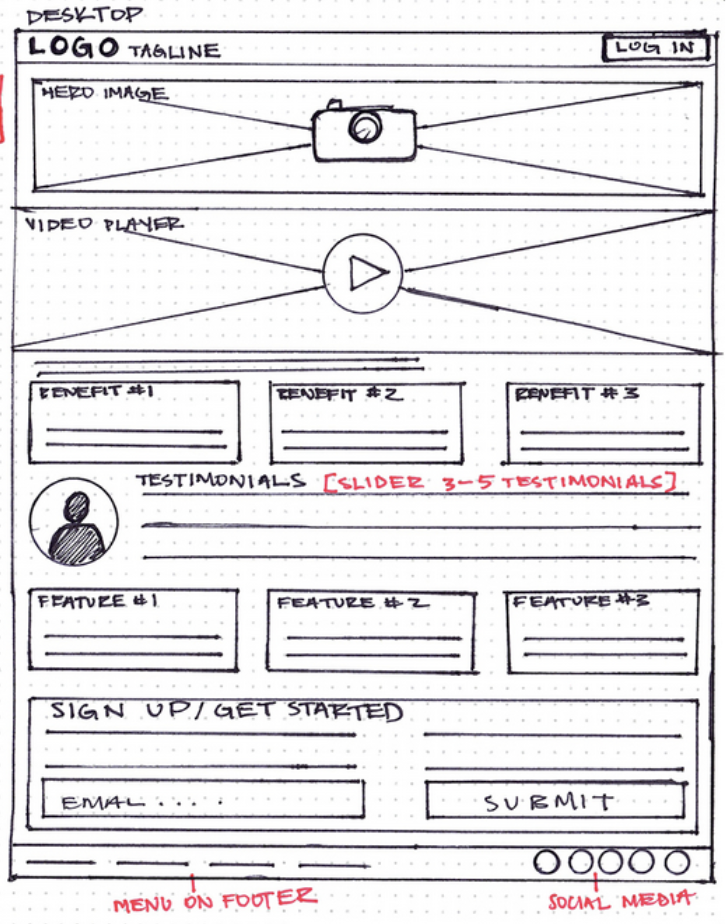 DESKTOP
LOGO TAGLINE
LOG IN
HERO IMAGE
VIDEO PLAYER
BENEFIT #1
BENEFIT #2
BENEFIT #3
TESTIMONIALS [SLIDER 3-5 TESTIMONIALS]
FEATURE #1
FEATURE #2
FEATURE #3
SIGN UP/GET STARTED
EMAL....
SUBMIT
MENU ON FOOTER
SOCIAL MEDIA